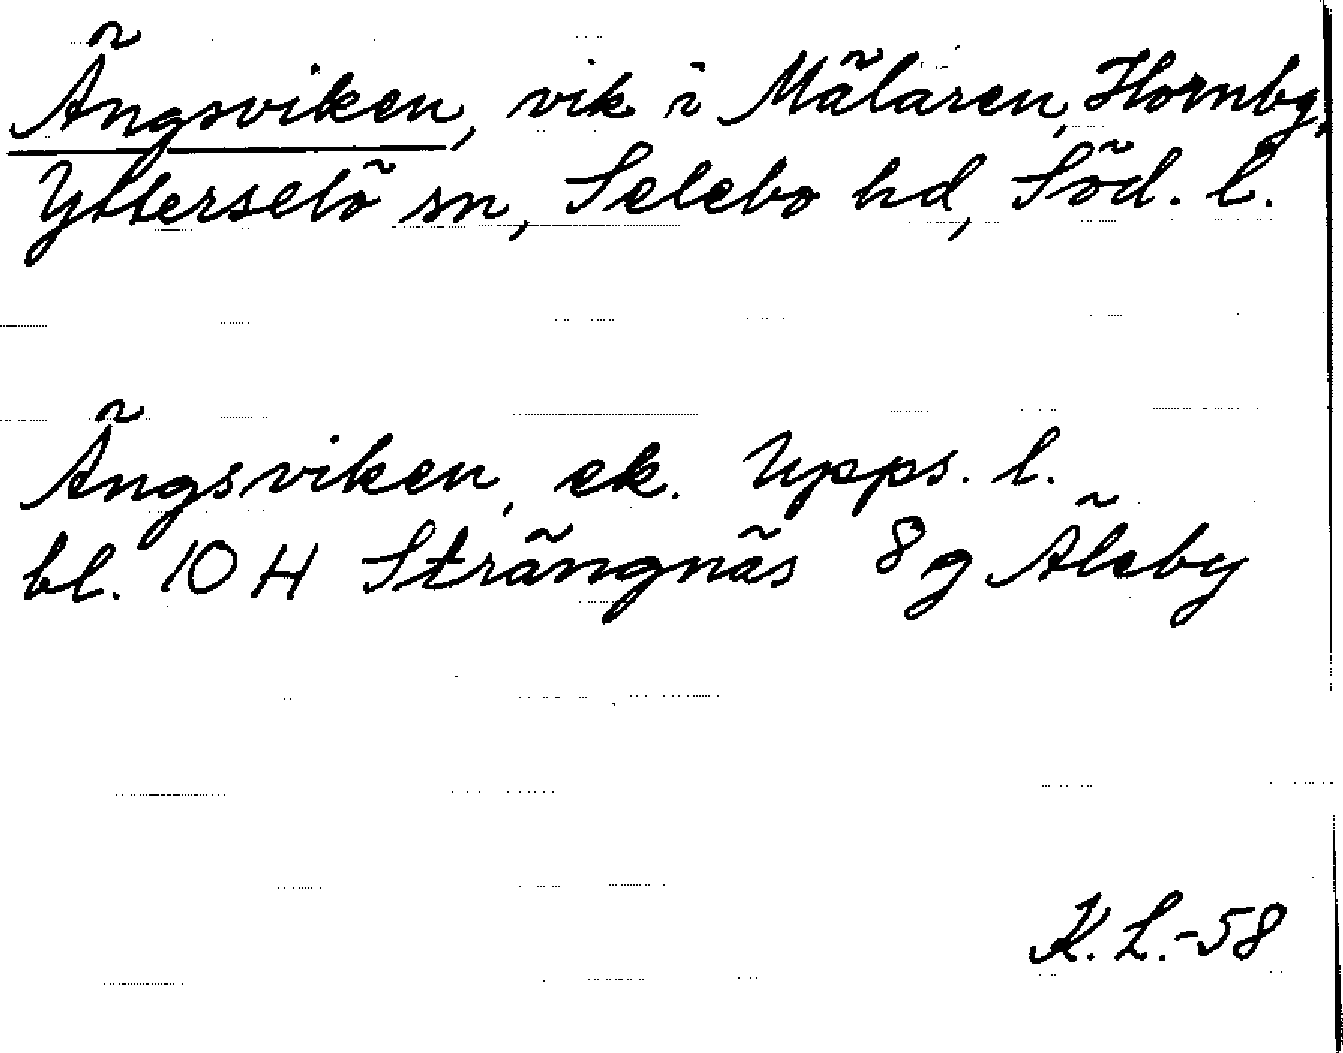 Ängsviken, vik i Mälaren, Hornby,
Ytterselö sn, Selebo hd, Söd. l.
Ängsviken, ek. Upps. l.
bl. 10 H Strängnäs 8 g Äleby
K. L. -58